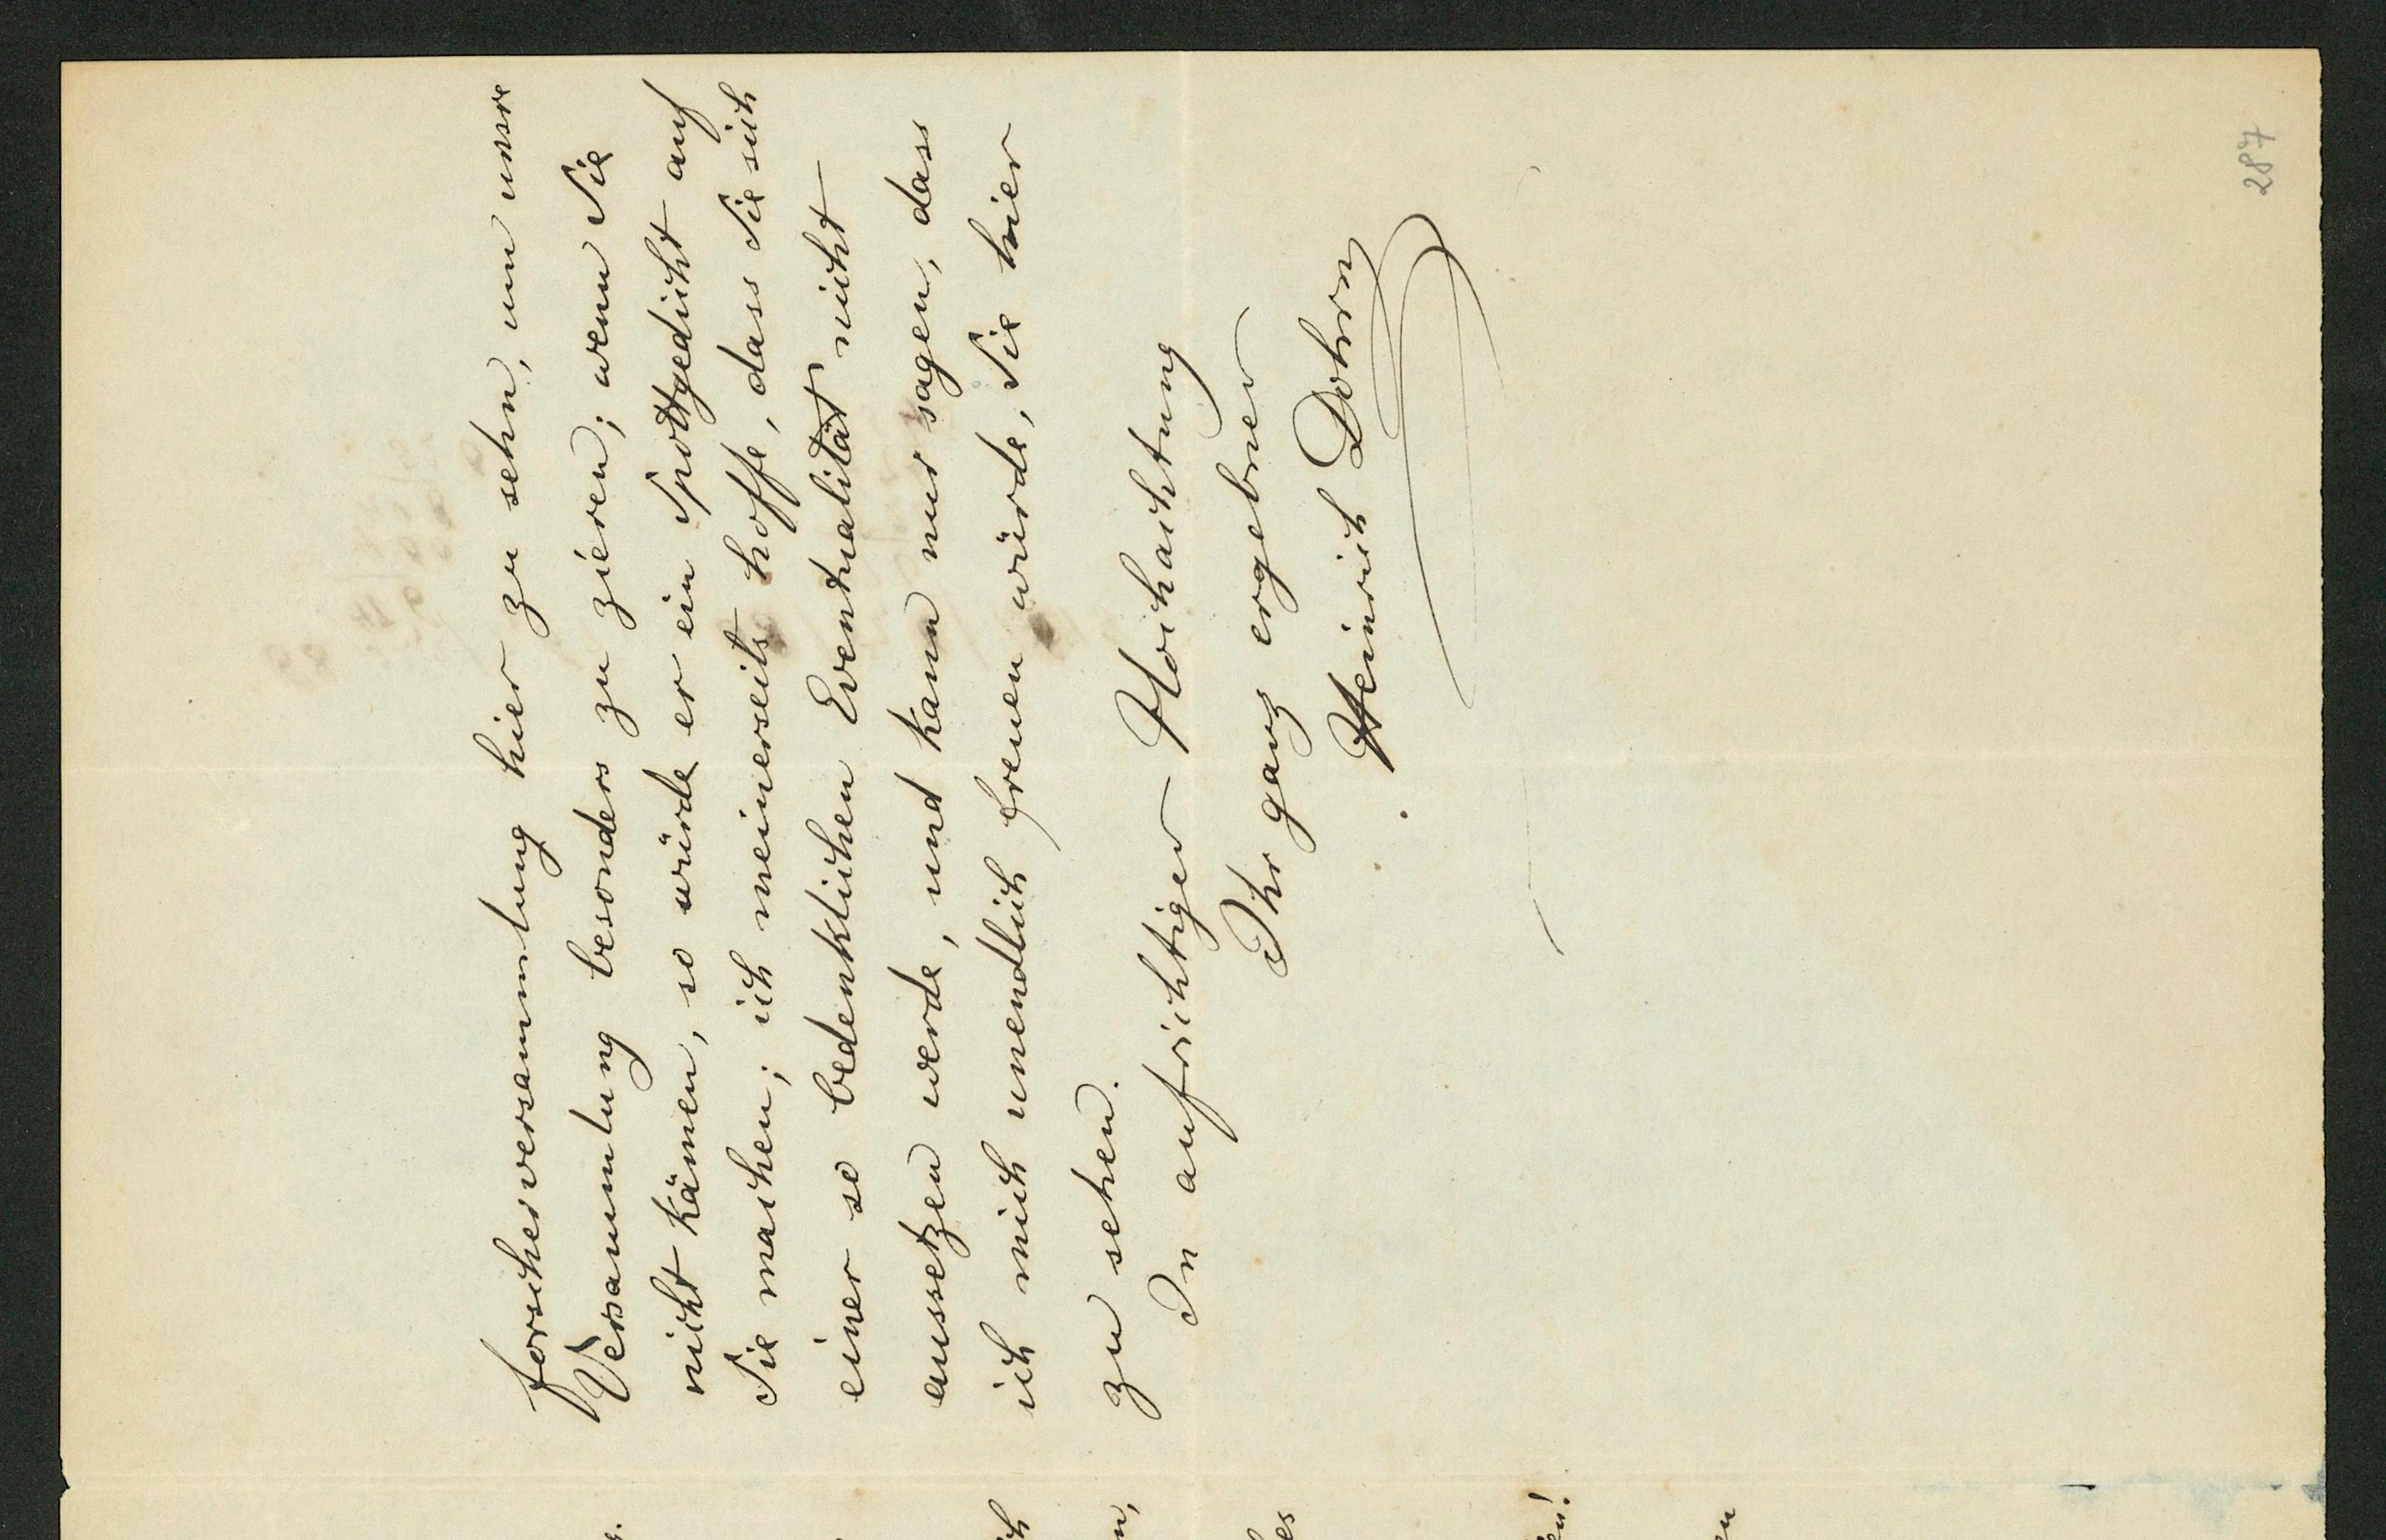 forscherversammlung hier zu sehn, um unsre
Versammlung besonders zu zieren; wenn Sie
nicht kämen, so würde er ein Spottgedicht auf
Sie machen; ich meinerseits hoffe, dass Sie sich
einer so bedenklichen Eventualität nicht
aussetzen werde, und kann nur sagen, dass
ich mich unendlich freuen würde, Sie hier
zu sehen.
In aufrichtiger Hochachtung
Ihr ganz ergebner
Heinrich Dohrn
287